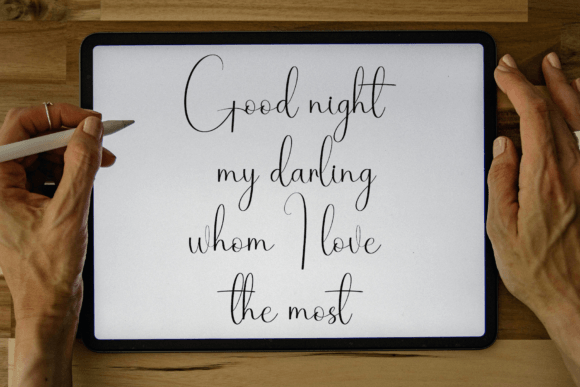 Good night
my darling
whom I love
the most